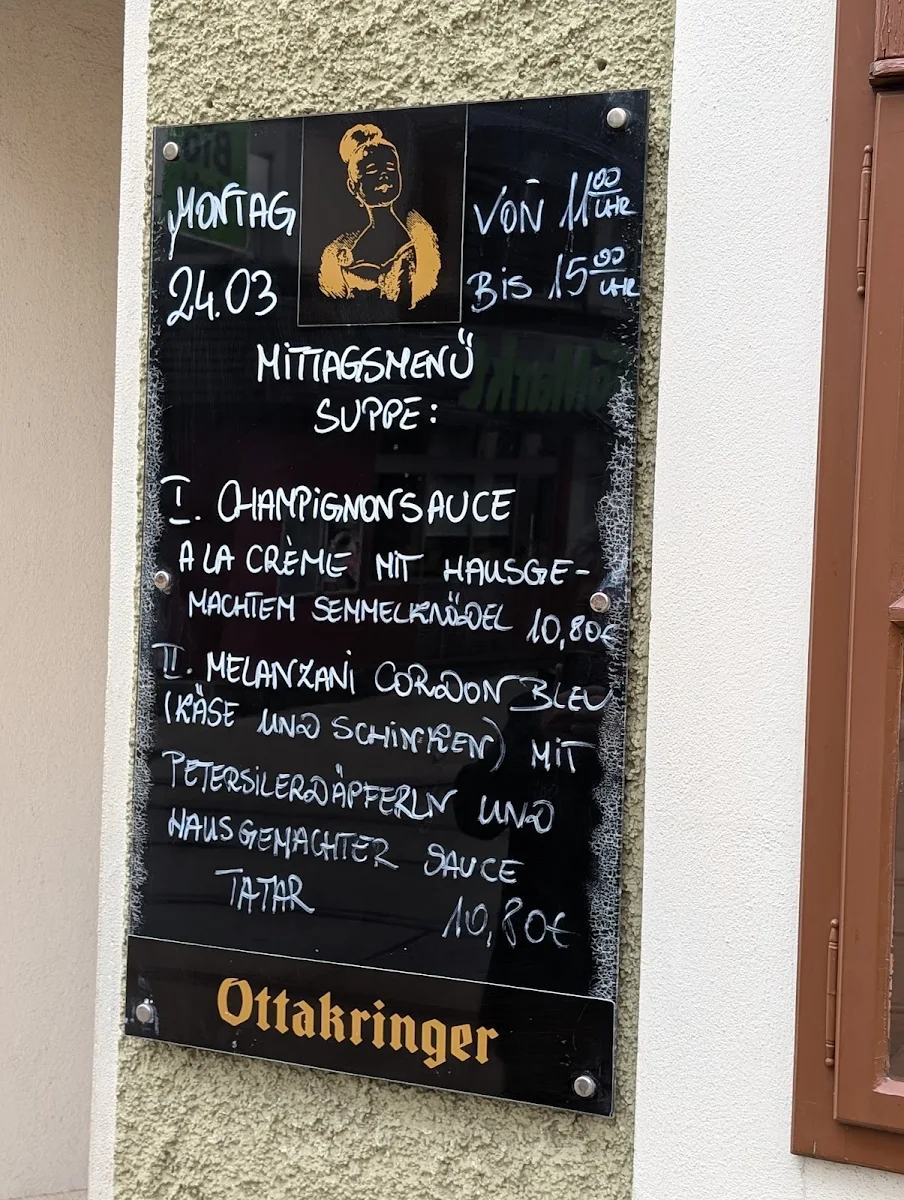 MONTAG
24.03
VON 11 00 UHR
BIS 15 00 UHR
MITTAGSMENÜ
SUPPE:
I. CHAMPIGNONSAUCE
A LA CRÈME MIT HAUSGE-
MACHTEM SEMMELKNÖDEL 10,80€
II. MELANZANI CORDON BLEU
(KÄSE UND SCHINKEN) MIT
PETERSILERDÄPFERLN UND
HAUSGEMACHTER SAUCE
TATAR 10,80€
Ottakringer